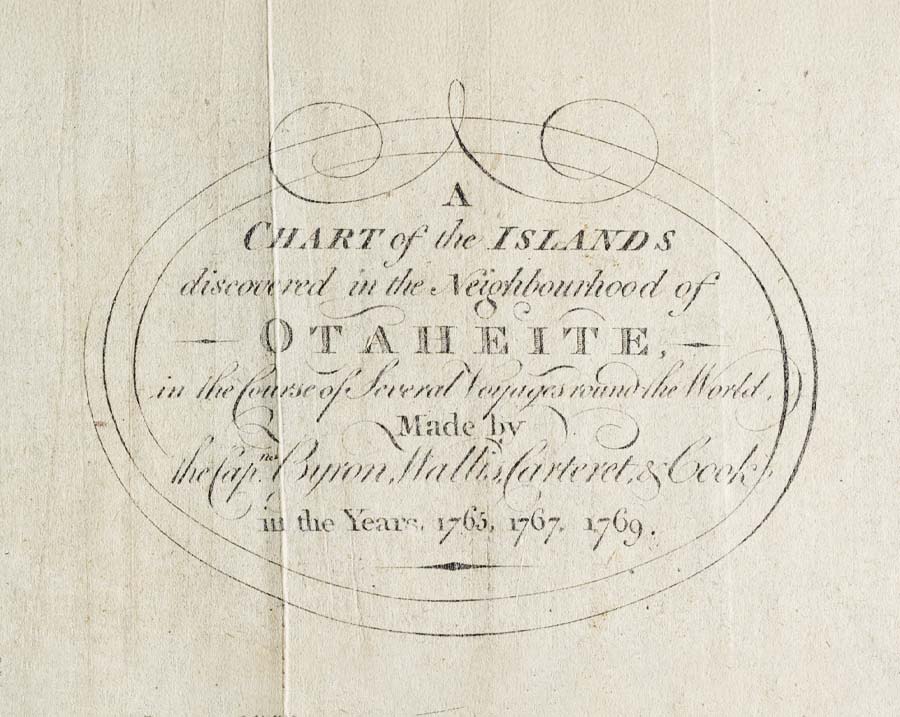 A
CHART of the ISLANDS
discovered in the Neighbourhood of
OTAHEITE,
in the Course of Several Voyages round the World,
Made by
the Cap.ns Byron, Wallis, Carteret, & Cook
in the Years, 1765, 1767, 1769.